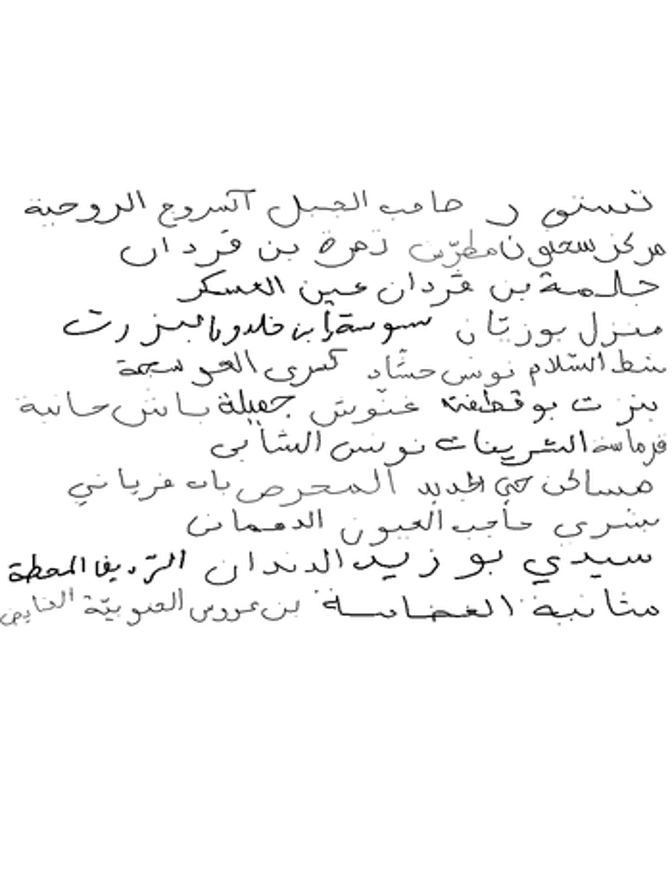 تستور حاجب الجبل السروج الروحية
مركز سحنون مطرّيس زهرة بن قردان
جلمة بن قردان عين العسكر
منزل بوزيّان سوسة ابن خلدون بنزرت
شط السّلام تونس حشّاد كسرى العوسجة
بنزت بوقطفة غنّوش جميلة باش حانبة
فرماسة الشرينات تونس الشابي
مساكن حيّ الجديد المحرص بات فرياني
بشرى حاجب العيون الدهماني
سيدي بوزيد الدندان الرّديف المحطة
مثانية الغضابنة بن عروس الجنوبيّة